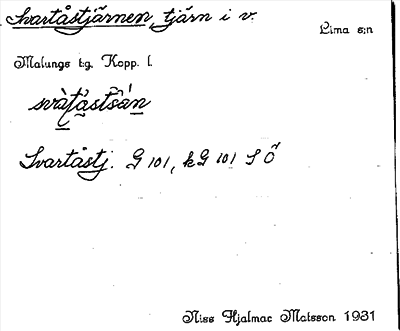 Svartåstjärnen, tjärn i v.
Lima s:n
Malungs tg. Kopp. l.
Svartåstj. G 101, kG 101 S Ö
Niss Hjalmar Matsson 1931